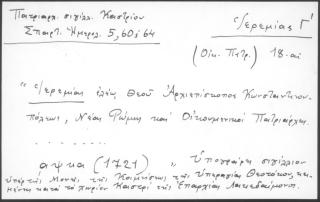 Πατριαρχ. σιγίλλ. Καστρίου
Σπαρτ. Ἡμερολ. 5, 60 ὁ 64
Ἱερεμίας Γ΄
(Οἰκ. Πατρ.) 18-αἰ
"Ἱερεμίας ἐλέῳ Θεοῦ Ἀρχιεπίσκοπος Κωνσταντινου-
πόλεως, Νέας Ρώμης καὶ Οἰκουμενικὸς Πατριάρχης
. . . . . . .
αψκα (1721) „ ὑπογράφει σιγίλλιον
ὑπὲρ τῆς Μονῆς τῆς Κοιμήσεως τῆς ὑπεραγίας Θεοτόκου, κει-
μένης κατὰ τὸ χωρίον Καστρὶ τῆς Ἐπαρχίας Λακεδαίμονος.